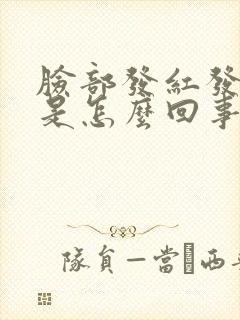 臉部發紅發
是怎麼回事
隊員—當 西